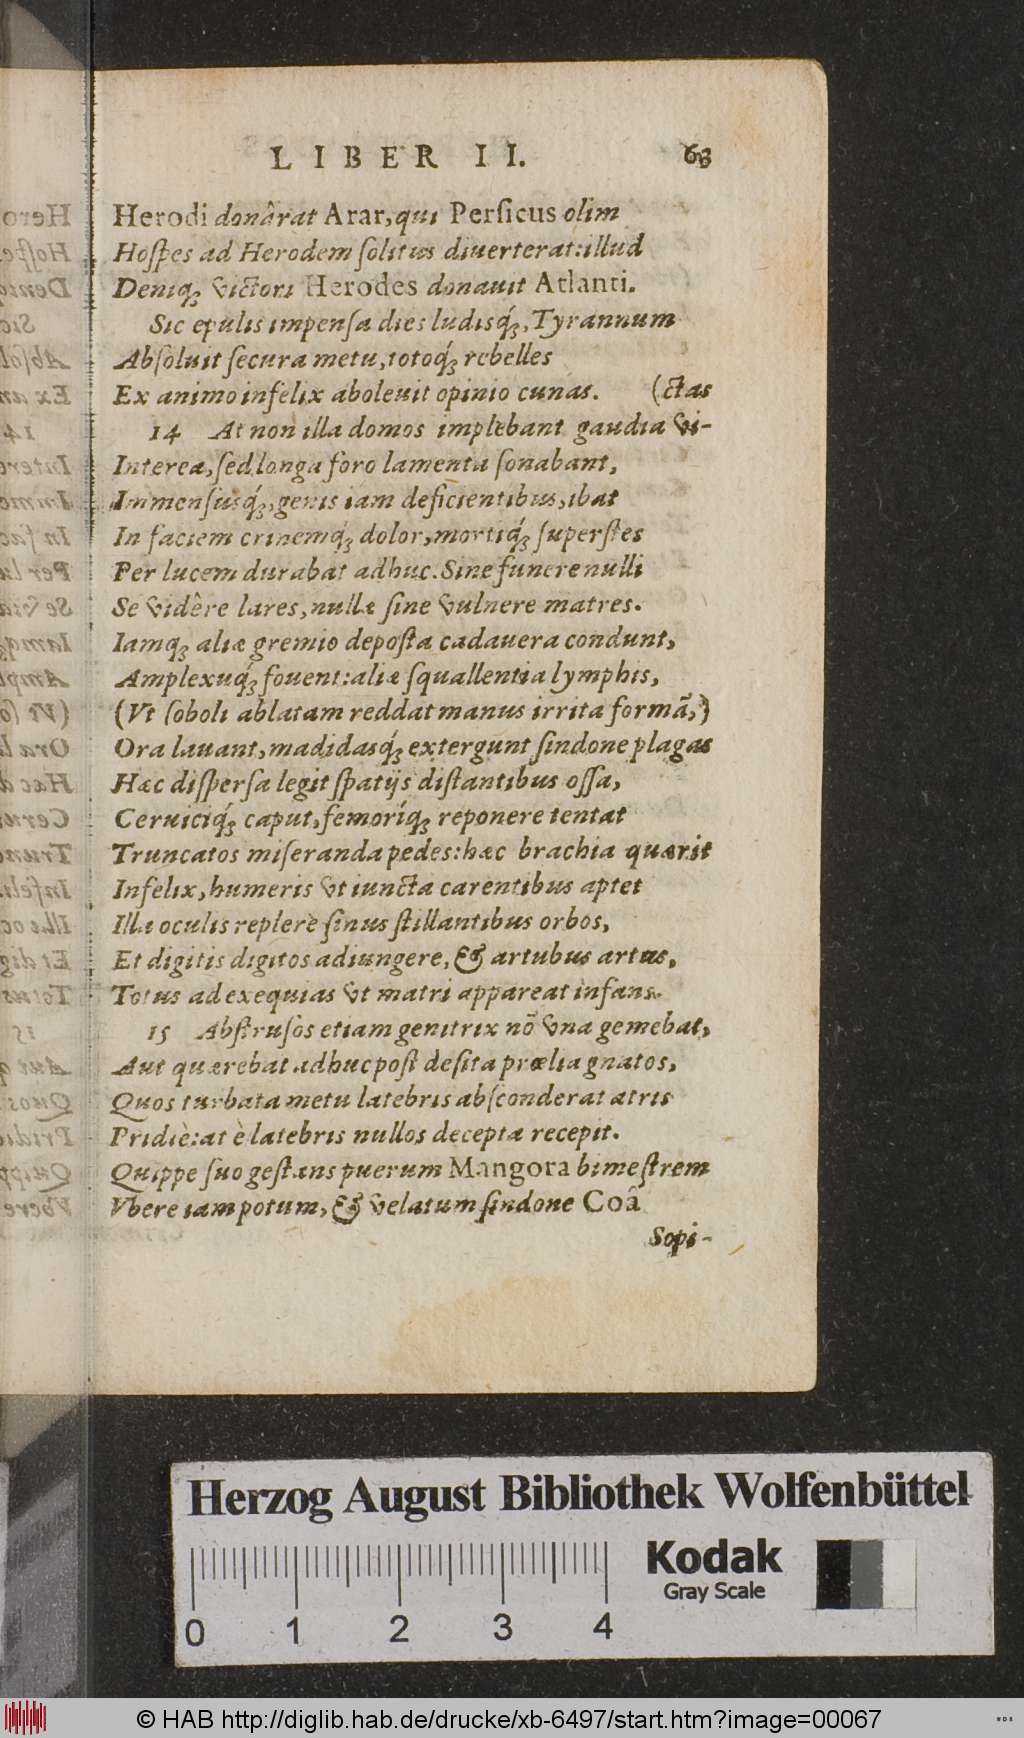 LIBER II. 63
Herodi donârat Arar, qui Persicus olim
Hospes ad Herodem solitus diuerterat: illud
Deniq; victori Herodes donauit Atlanti.
Sic epulis impensa dies ludisq́;, Tyrannum
Absoluit secura metu, totoq́; rebelles
Ex animo infelix aboleuit opinio cunas. (ctas
14 At non illa domos implebant gaudia vi-
Interea, sed longa foro lamenta sonabant,
Immensusq́;, genis iam deficientibus, ibat
In faciem crinemq́; dolor, mortiq́; superstes
Per lucem durabat adhuc. Sine funere nulli
Se vidêre lares, nullæ sine vulnere matres.
Iamq; aliæ gremio deposta cadauera condunt,
Amplexuq́; fouent: aliæ squallentia lymphis,
(Vt soboli ablatam reddat manus irrita formã,)
Ora lauant, madidasq́; extergunt sindone plagas
Hæc dispersa legit spatijs distantibus ossa,
Ceruiciq́; caput, femoríq; reponere tentat
Truncatos miseranda pedes: hæc brachia quærit
Infelix, humeris vt iuncta carentibus aptet
Illa oculis replere sinus stillantibus orbos,
Et digitis digitos adiungere, & artubus artus,
Totus ad exequias vt matri appareat infans.
15 Abstrusos etiam genitrix nõ vna gemebat,
Aut quærebat adhuc post desita prælia gnatos,
Quos turbata metu latebris absconderat atris
Pridiè: at è latebris nullos decepta recepit.
Quippe suo gestans puerum Mangora bimestrem
Vbere iam potum, & velatum sindone Coâ
Sopi-
Herzog August Bibliothek Wolfenbüttel
Kodak
Gray Scale
0 1 2 3 4
© HAB http://diglib.hab.de/drucke/xb-6497/start.htm?image=00067